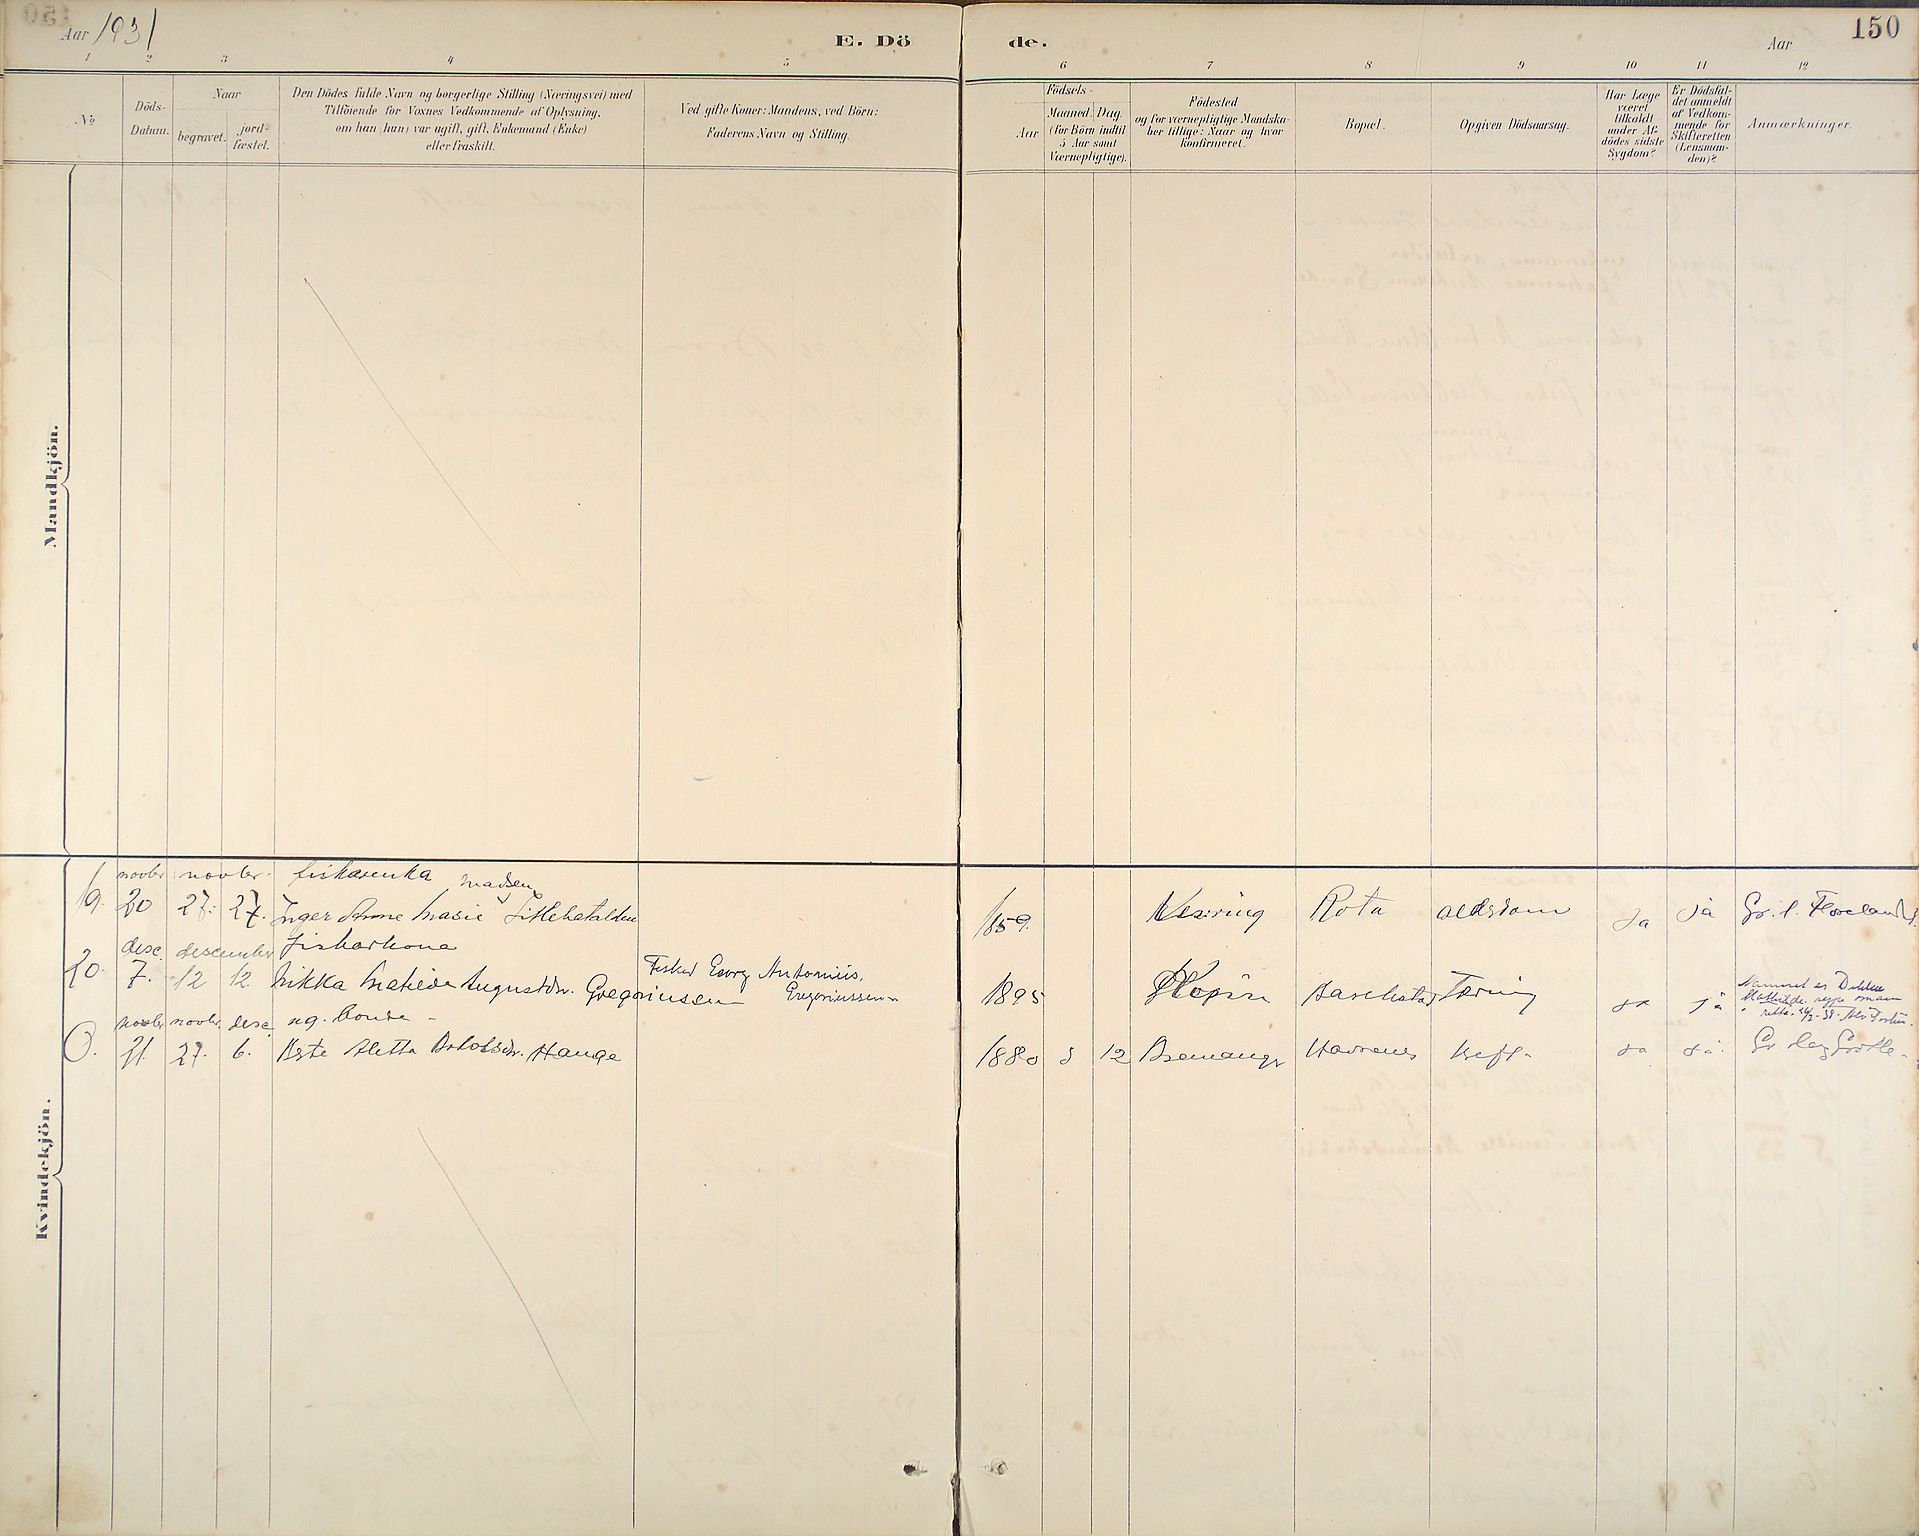 Aar 1931
E. Dö
de.
Aar
150
1 2 3 4 5 6 7 8 9 10 11 12
No
Döds-
Datum.
Naar
begravet.
jord-
fæstet.
Den Dödes fulde Navn og borgerlige Stilling (Næringsvei) med
Tilföiende for Voxnes Vedkommende af Oplysning,
om han (hun) var ugift, gift, Enkemand (Enke)
eller fraskilt.
Ved gifte Koner: Mandens, ved Börn:
Faderens Navn og Stilling.
Födsels-
Aar
Maaned. Dag.
(for Börn indtil
5 Aar samt
Værnepligtige).
Födested
og for værnepligtige Mandska-
ber tillige: Naar og hvor
konfirmeret.
Bopæl.
Opgiven Dödsaarsag.
Har Læge
været
tilkaldt
under Af-
dödes sidste
Sygdom?
Er Dödsfal-
det anmeldt
af Vedkom-
mende for
Skifteretten
(Lensman-
den)?
Anmærkninger.
Mandkjön.
Kvindekjön.
novbr novbr. fiskarenka Madsen
19. 20 27. 27. Inger Anne Marie 1859. Rota alderdom ja ja Gr. l.
desc. descember fiskarkona
20. 7. 12 12. Mathilde Augustdtr. Gregoriussen
Fisker Georg Antonius
Gregoriussen
1895 Tæring ja ja
Namnet er
Mathilde
novbr novbr. desc. ug. bonde
21. 27. 6. Aletta Hauge 1880 5 12 Bremanger Kreft. ja ja. Gr